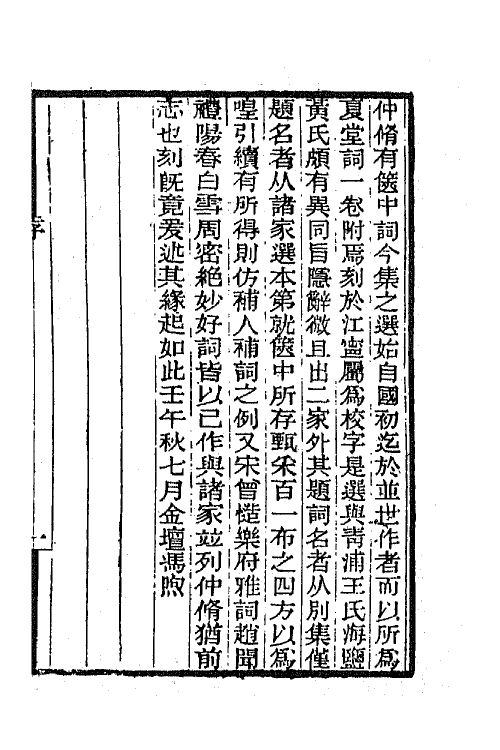 仲脩有篋中詞今集之選始自國初迄於並世作者而以所爲
夏堂詞一卷附焉刻於江寧屬爲校字是選與靑浦王氏海鹽
黃氏頗有異同旨隱辭微且出二家外其題詞名者从別集僅
題名者从諸家選本第就篋中所存甄采百一布之四方以爲
喤引續有所得則仿補人補詞之例又宋曾慥樂府雅詞趙聞
禮陽春白雪周密絶妙好詞皆以己作與諸家竝列仲脩猶前
志也刻旣竟爰述其緣起如此壬午秋七月金壇馮煦
序
一